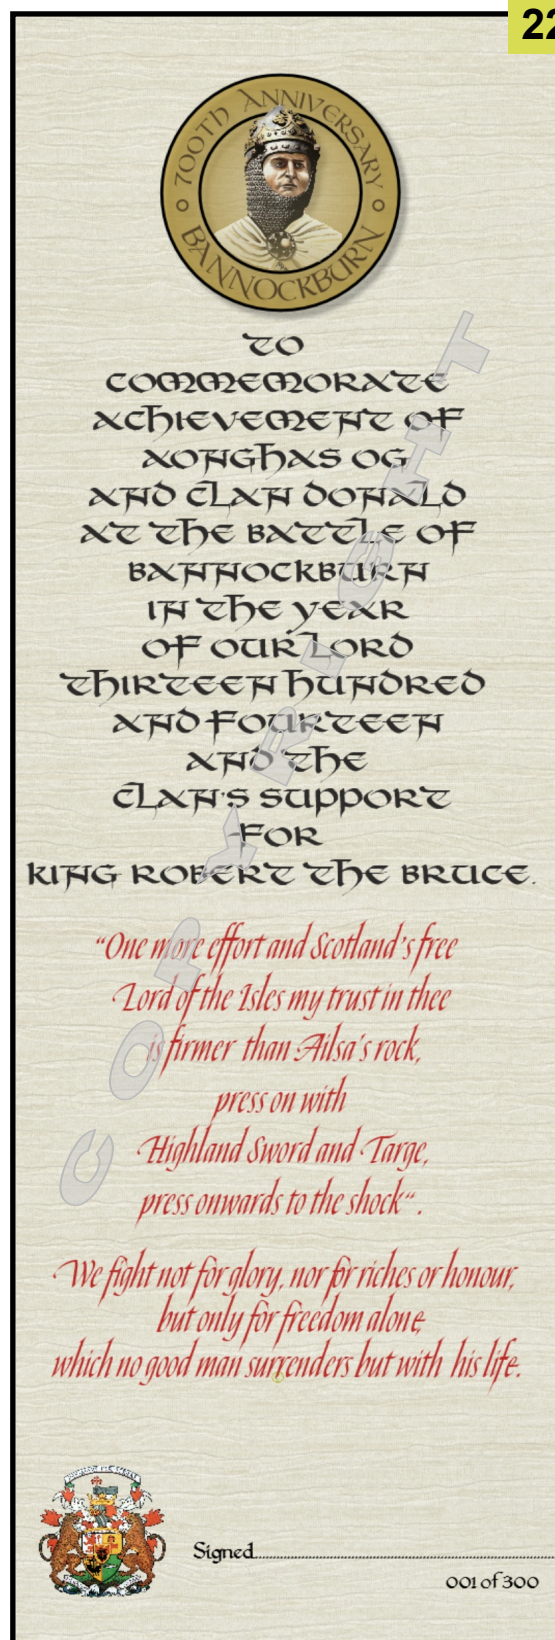 22
700TH ANNIVERSARY
BANNOCKBURN
TO
COMMEMORATE
ACHIEVEMENT OF
AONGHAS OG
AND CLAN DONALD
AT THE BATTLE OF
BANNOCKBURN
IN THE YEAR
OF OUR LORD
THIRTEEN HUNDRED
AND FOURTEEN
AND THE
CLAN'S SUPPORT
FOR
KING ROBERT THE BRUCE.
"One more effort and Scotland's free
Lord of the Isles my trust in thee
is firmer than Ailsa's rock,
press on with
Highland Sword and Targe,
press onwards to the shock“.
We fight not for glory, nor for riches or honour,
but only for freedom alone,
which no good man surrenders but with his life.
Signed
001 of 300
COPYRIGHT